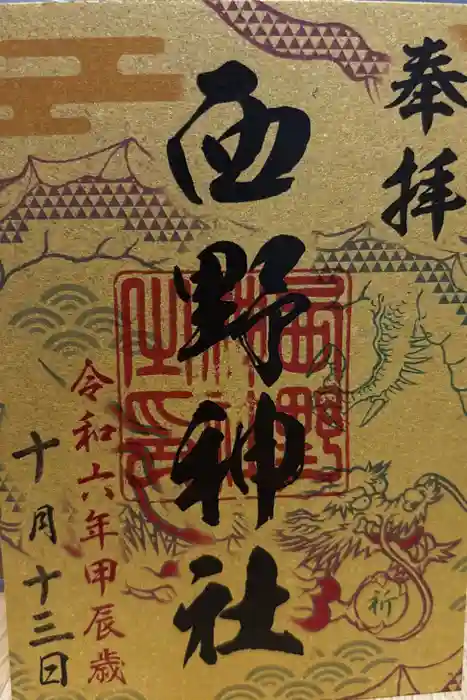 奉拝
西野神社
令和六年甲辰歳
十月十三日
祈